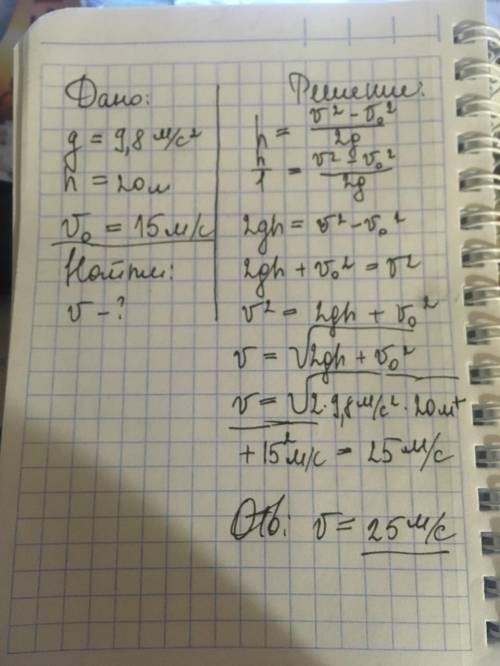 Дано:
g = 9,8 м/с²
h = 20м
v₀ = 15 м/с
Найти:
v - ?
Решение:
h = (v² - v₀²)/2g
h/1 = (v² - v₀²)/2g
2gh = v² - v₀²
2gh + v₀² = v²
v² = 2gh + v₀²
v = √2gh + v₀²
v = √2·9,8 м/с²·20м +
+ 15² м/с = 25 м/с
Отв: v = 25 м/с